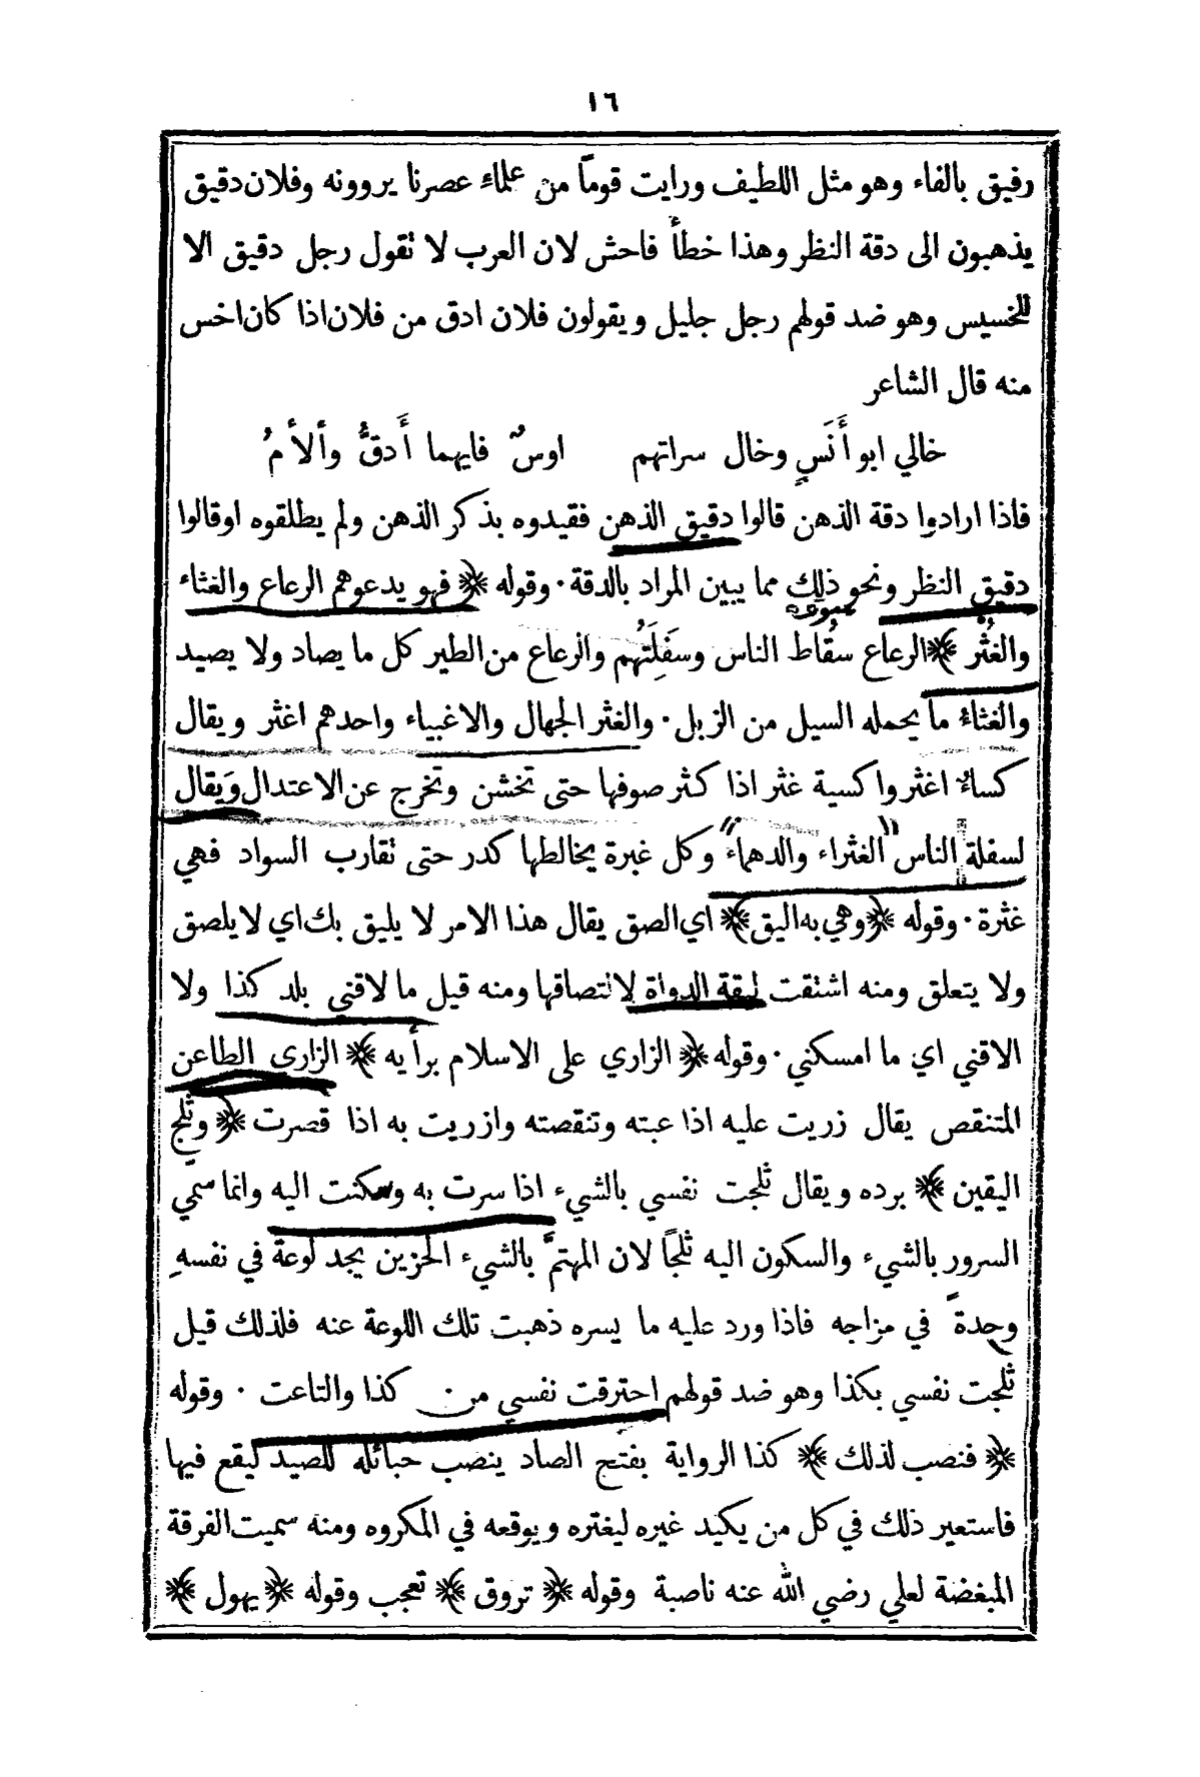 ١٦
رفيق بالفاء وهو مثل اللطيف ورايت قوماً من علماء عصرنا يروونه وفلان دقيق
يذهبون الى دقة النظر وهذا خطأ فاحش لان العرب لا تقول رجل دقيق الا
للخسيس وهو ضد قولهم رجل جليل ويقولون فلان ادق من فلان اذا كان اخس
منه قال الشاعر
خالي ابو أَنَسٍ وخال سراتهم اوسٌ فايهما أَدقُّ وألأمُ
فاذا ارادوا دقة الذهن قالوا دقيق الذهن فقيدوه بذكر الذهن ولم يطلقوه او قالوا
دقيق النظر ونحو ذلك مما يبين المراد بالدقة · وقوله ﴿ فهو يدعوهم الرعاع والغثاء
والغُثْر ﴾ الرعاع سقُاط الناس وسفَلِتَهُم والرعاع من الطير كل ما يصاد ولا يصيد
والغثاءُ ما يحمله السيل من الزبل · والغثر الجهال والاغبياء واحدهم اغثر ويقال
كساءٌ اغثر واكسية غثر اذا كثر صوفها حتى تخشن وتخرج عن الاعتدال وَيقال
لسفلة الناس "الغثراء والدهماء" وكل غبرة يخالطها كدر حتى تقارب السواد فهي
غثرة · وقوله ﴿ وهي به اليق ﴾ اي الصق يقال هذا الامر لا يليق بك اي لا يلصق
ولا يتعلق ومنه اشتقت ليقة الدواة لالتصاقها ومنه قيل ما لاقني بلد كذا ولا
الاقني اي ما امسكني · وقوله ﴿ الزاري على الاسلام برأيه ﴾ الزارى الطاعن
المتنقص يقال زريت عليه اذا عبته وتنقصته وازريت به اذا قصرت ﴿ وثلج
اليقين ﴾ برده ويقال ثلجت نفسي بالشيء اذا سرت به وسكنت اليه وانما سمي
السرور بالشيء والسكون اليه ثلجاً لان المهتمَّ بالشيء الحزين يجد لوعة في نفسهِ
وحدةً في مزاجه فاذا ورد عليه ما يسره ذهبت تلك اللوعة عنه فلذلك قيل
ثلجت نفسي بكذا وهو ضد قولهم احترقت نفسي من كذا والتاعت · وقوله
﴿ فنصب لذلك ﴾ كذا الرواية بفتح الصاد ينصب حبائله للصيد ليقع فيها
فاستعير ذلك في كل من يكيد غيره ليغتره ويوقعه في المكروه ومنه سميت الفرقة
المبغضة لعلي رضي الله عنه ناصبة وقوله ﴿ تروق ﴾ تعجب وقوله ﴿ يهول ﴾